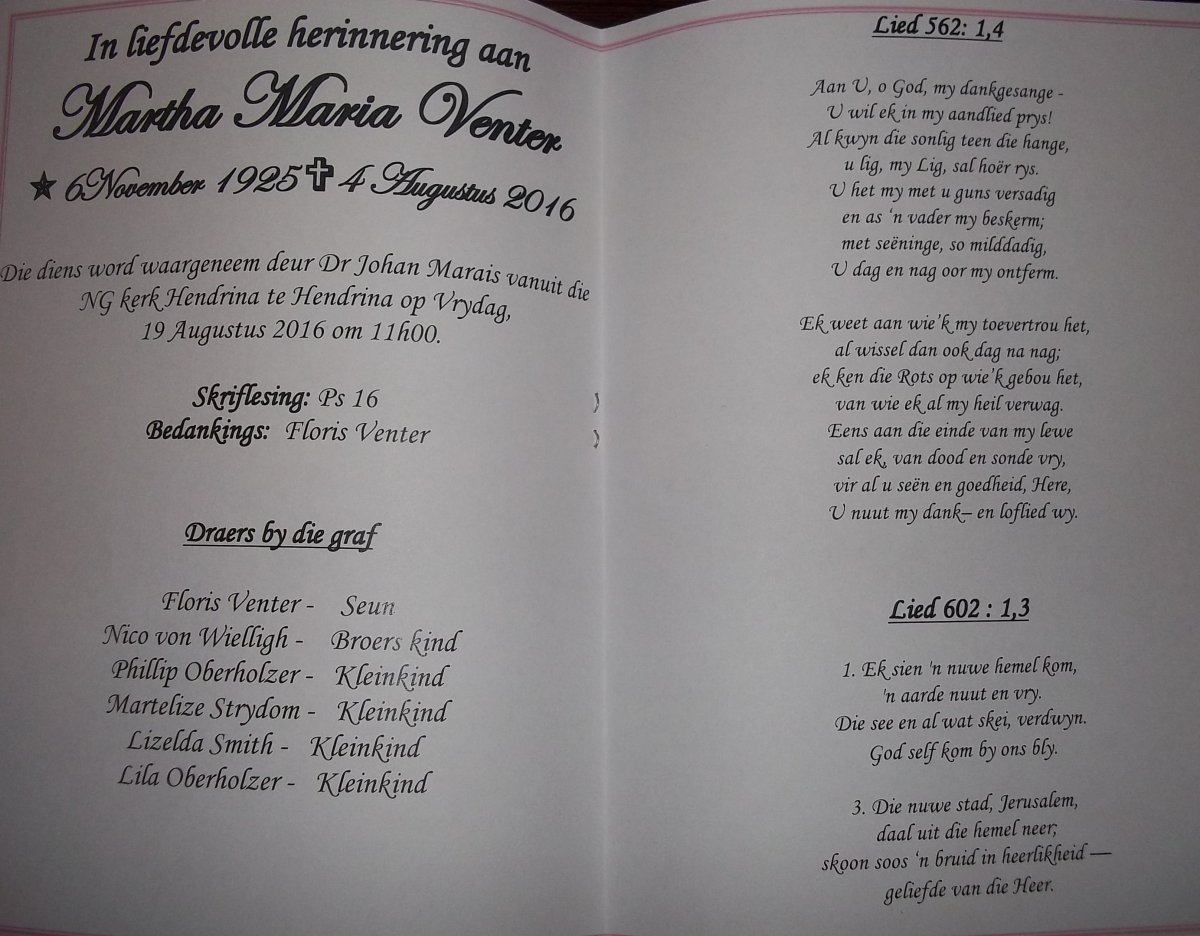 In liefdevolle herinnering aan
Martha Maria Venter
★ 6November 1925 ✝ 4 Augustus 2016
Die diens word waargeneem deur Dr Johan Marais vanuit die
NG kerk Hendrina te Hendrina op Vrydag,
19 Augustus 2016 om 11h00.
Skriflesing: Ps 16
Bedankings: Floris Venter
Draers by die graf
Floris Venter - Seun
Nico von Wielligh - Broers kind
Phillip Oberholzer - Kleinkind
Martelize Strydom - Kleinkind
Lizelda Smith - Kleinkind
Lila Oberholzer - Kleinkind
Lied 562: 1,4
Aan U, o God, my dankgesange -
U wil ek in my aandlied prys!
Al kwyn die sonlig teen die hange,
u lig, my Lig, sal hoër rys.
U het my met u guns versadig
en as ‘n vader my beskerm;
met seëninge, so milddadig,
U dag en nag oor my ontferm.
Ek weet aan wie’k my toevertrou het,
al wissel dan ook dag na nag;
ek ken die Rots op wie’k gebou het,
van wie ek al my heil verwag.
Eens aan die einde van my lewe
sal ek, van dood en sonde vry,
vir al u seën en goedheid, Here,
U nuut my dank– en loflied wy.
Lied 602 : 1,3
1. Ek sien 'n nuwe hemel kom,
'n aarde nuut en vry.
Die see en al wat skei, verdwyn.
God self kom by ons bly.
3. Die nuwe stad, Jerusalem,
daal uit die hemel neer;
skoon soos ‘n bruid in heerlikheid —
geliefde van die Heer.